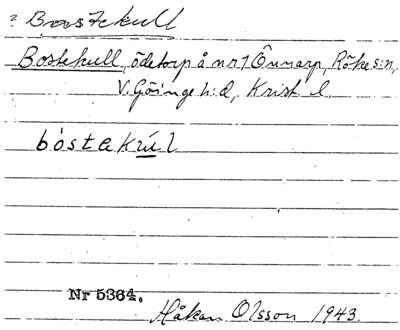 ? Bostekull
Bostekull, ödetorp å nr 1 Önnarp, Röke s:n,
V. Göinge h:d, Krist. l.
bòstakrúl
Nr 5364.
Håkan Olsson 1943.